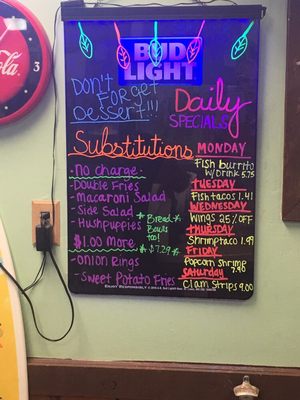 Coca-Cola
BUD
LIGHT
Don't Forget
Dessert!!!
Daily
Specials
Substitutions
No charge
- Double Fries
- Macaroni Salad
- Side Salad
- Hushpuppies
* Bread *
Bowls
too!
* $7.29 *
$1.00 More
- Onion Rings
- Sweet Potato Fries
MONDAY
Fish burrito
w/Drink 5.75
TUESDAY
Fish tacos 1.41
WEDNESDAY
Wings 25% OFF
THURSDAY
Shrimp taco 1.99
FRIDAY
Popcorn Shrimp
7.90
Saturday
Clam Strips 9.00
ENJOY RESPONSIBLY